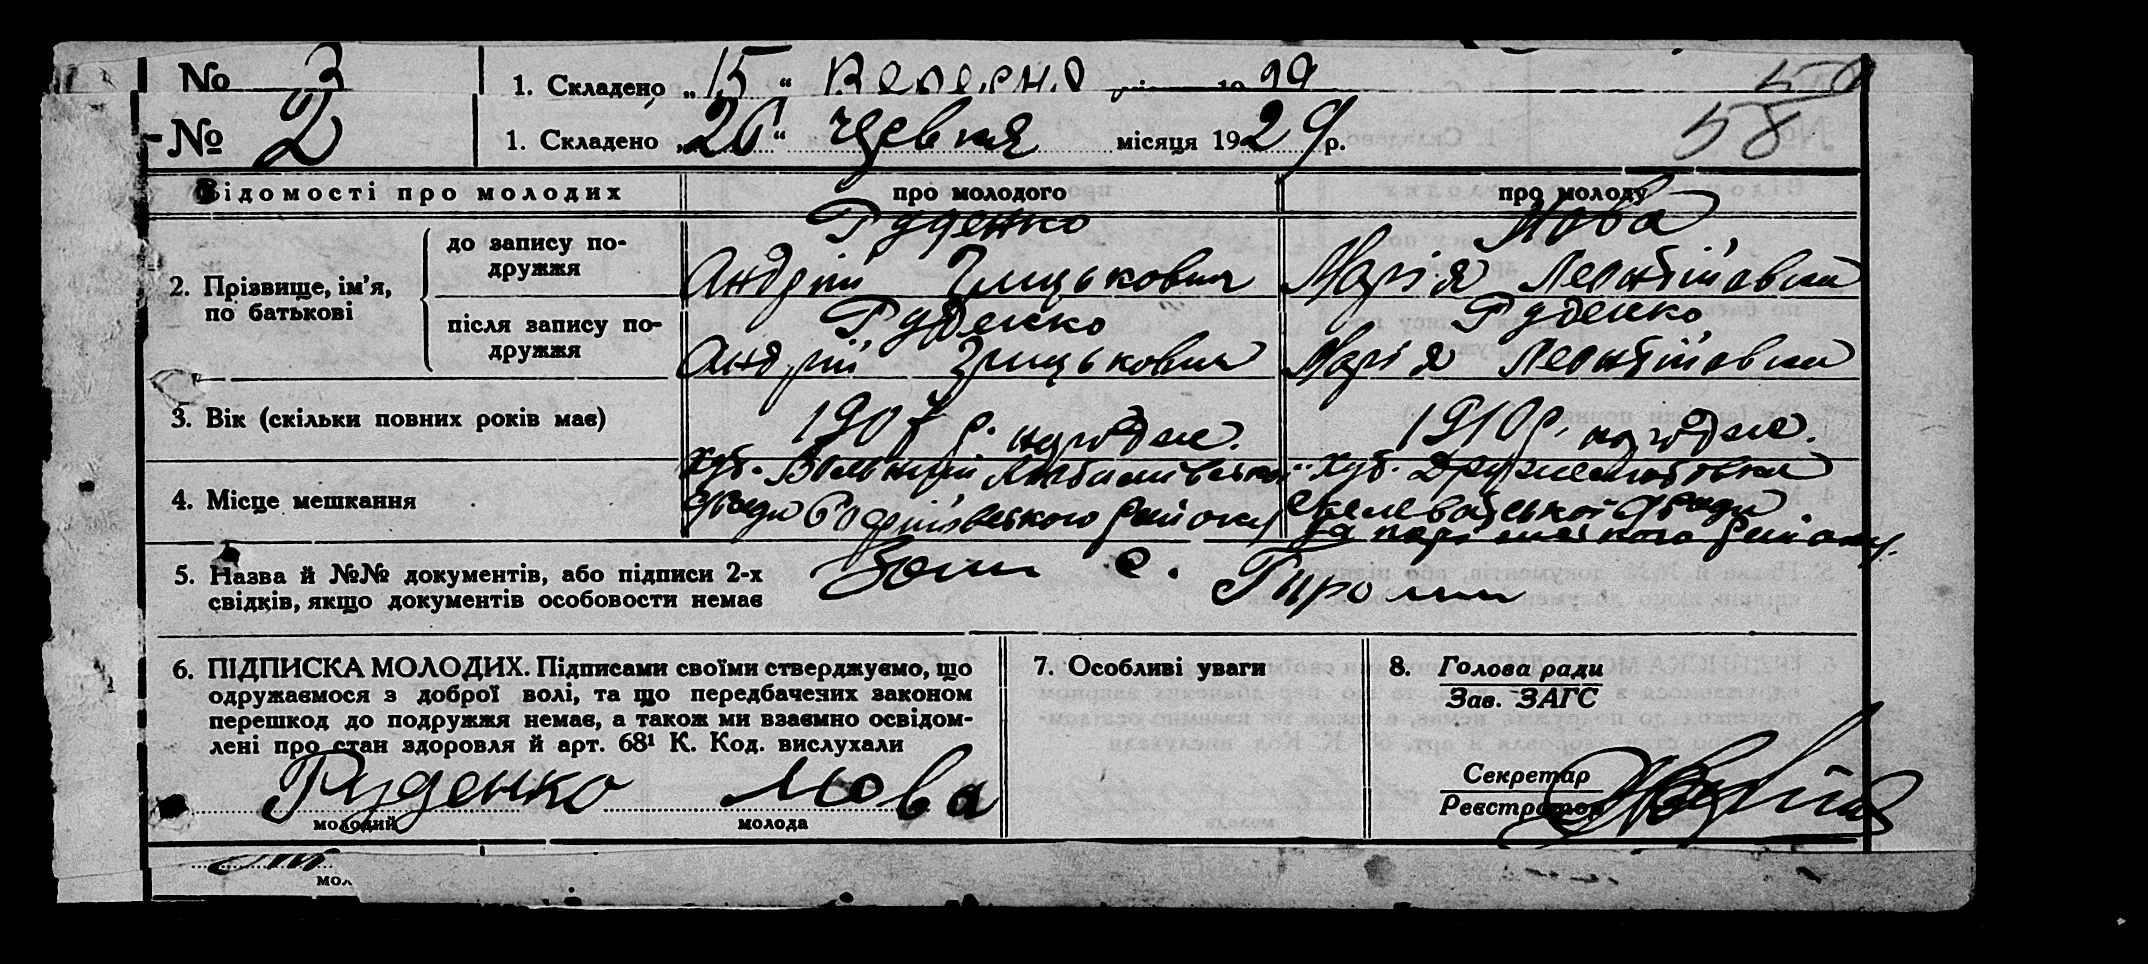 № 3 1. Складено „15“ Вересня 1929 59
№ 2 1. Складено „26“ червня місяця 1929 р. 58
Відомості про молодих про молодого про молоду
2. Прізвище, ім’я, по батькові
до запису подружжя
Руденко
Андрій Грицькович
Мова
Марія Леонтіївна
після запису подружжя
Руденко
Андрій Грицькович
Руденко
Марія Леонтіївна
3. Вік (скільки повних років має) 1907 р. народже. 1910 р. народже.
4. Місце мешкання
хут. Вольний
ради Софіївського району
хут. Дружелюбовка
ради
району
5. Назва й №№ документів, або підписи 2-х
свідків, якщо документів особовости немає
с.
6. ПІДПИСКА МОЛОДИХ. Підписами своїми стверджуємо, що
одружаємося з доброї волі, та що передбачених законом
перешкод до подружжя немає, а також ми взаємно освідом-
лені про стан здоровля й арт. 68¹ К. Код. вислухали
Руденко Мова
молодий молода
7. Особливі уваги
8. Голова ради
Зав. ЗАГС
Секретар
Реєстратор
мол